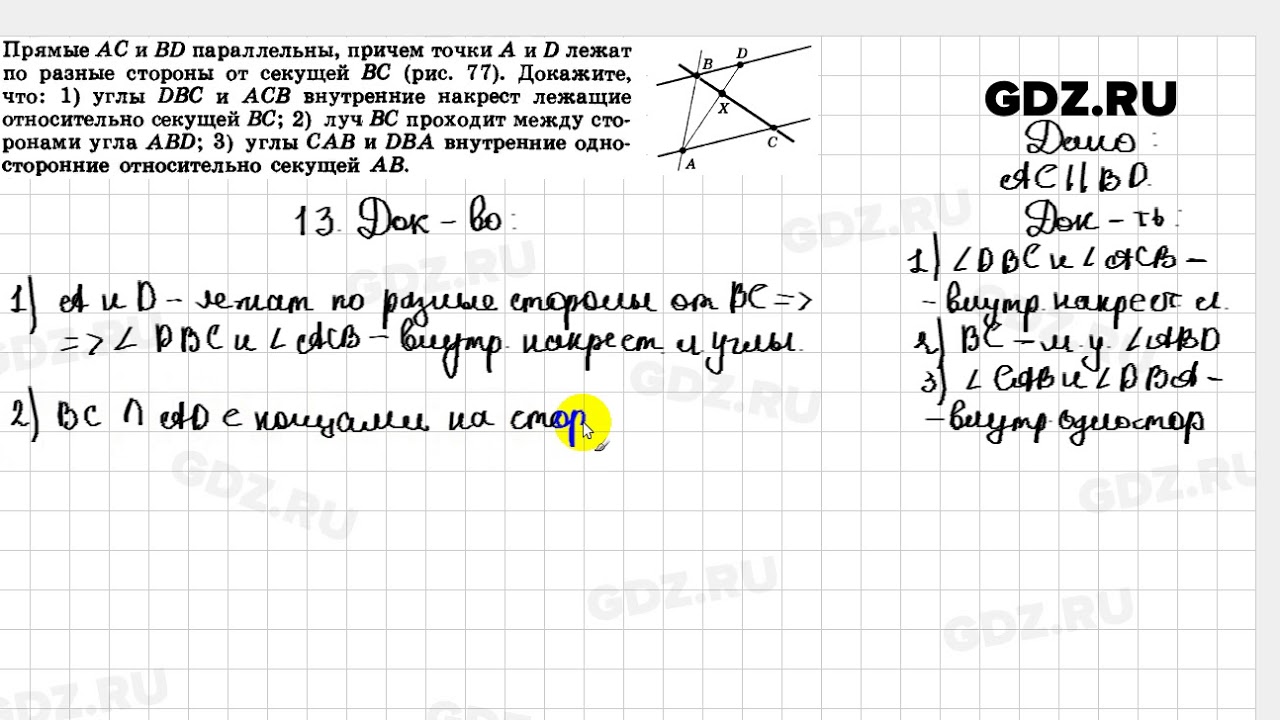 Прямые AC и BD параллельны, причем точки A и D лежат
по разные стороны от секущей BC (рис. 77). Докажите,
что: 1) углы DBC и ACB внутренние накрест лежащие
относительно секущей BC; 2) луч BC проходит между сто-
ронами угла ABD; 3) углы CAB и DBA внутренние одно-
сторонние относительно секущей AB.
B
D
X
C
A
GDZ.RU
Дано:
AC || BD.
Док-ть:
1) ∠DBC и ∠ACB –
– внутр. накрест л.
2) BC – м. у. ∠ABD
3) ∠CAB и ∠DBA –
– внутр. одностор
13. Док-во:
1) A и D – лежат по разные стороны от BC =>
=> ∠DBC и ∠ACB – внутр. накрест. л углы.
2) BC ∩ AD с концами на стор
GDZ.RU
GDZ.RU
GDZ.RU
GDZ.RU
GDZ.RU
GDZ.RU
GDZ.RU
GDZ.RU
GDZ.RU
GDZ.RU